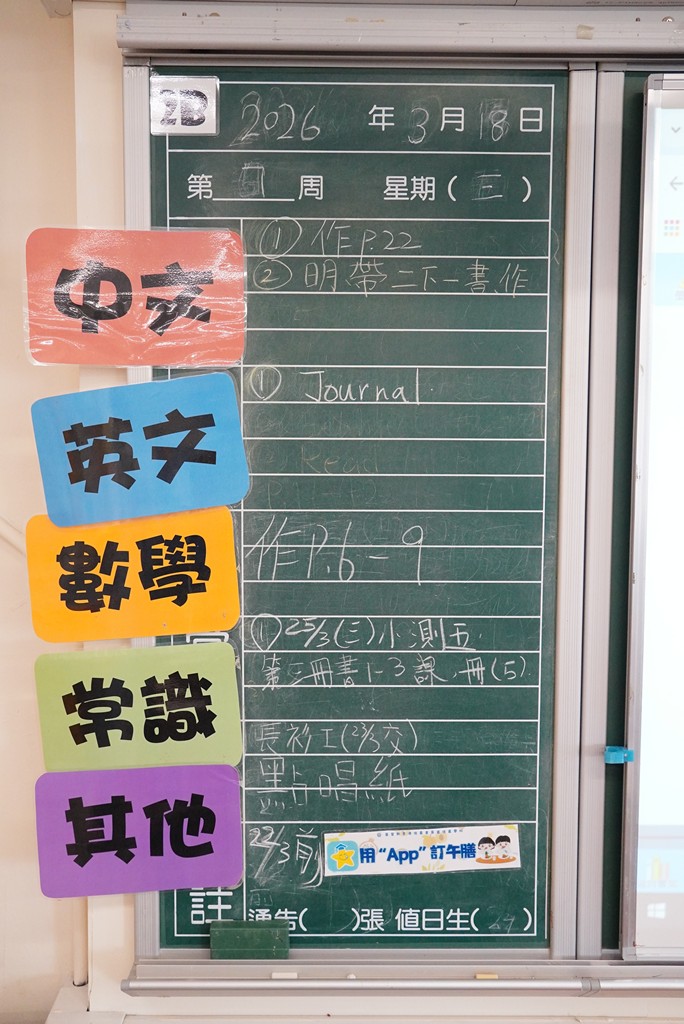 2B
2026 年 3 月 18 日
第____周 星期(三)
中文
① 作P.22
② 明帶二下一書、作
英文
① Journal.
Read
數學
作P.6-9
常識
① 25/3(三)小測五.
第三冊書1-3課、冊(5).
其他
長衫工(23/3交)
點唱紙
22/3前
用“App”訂午膳
註
通告( )張 值日生(24)